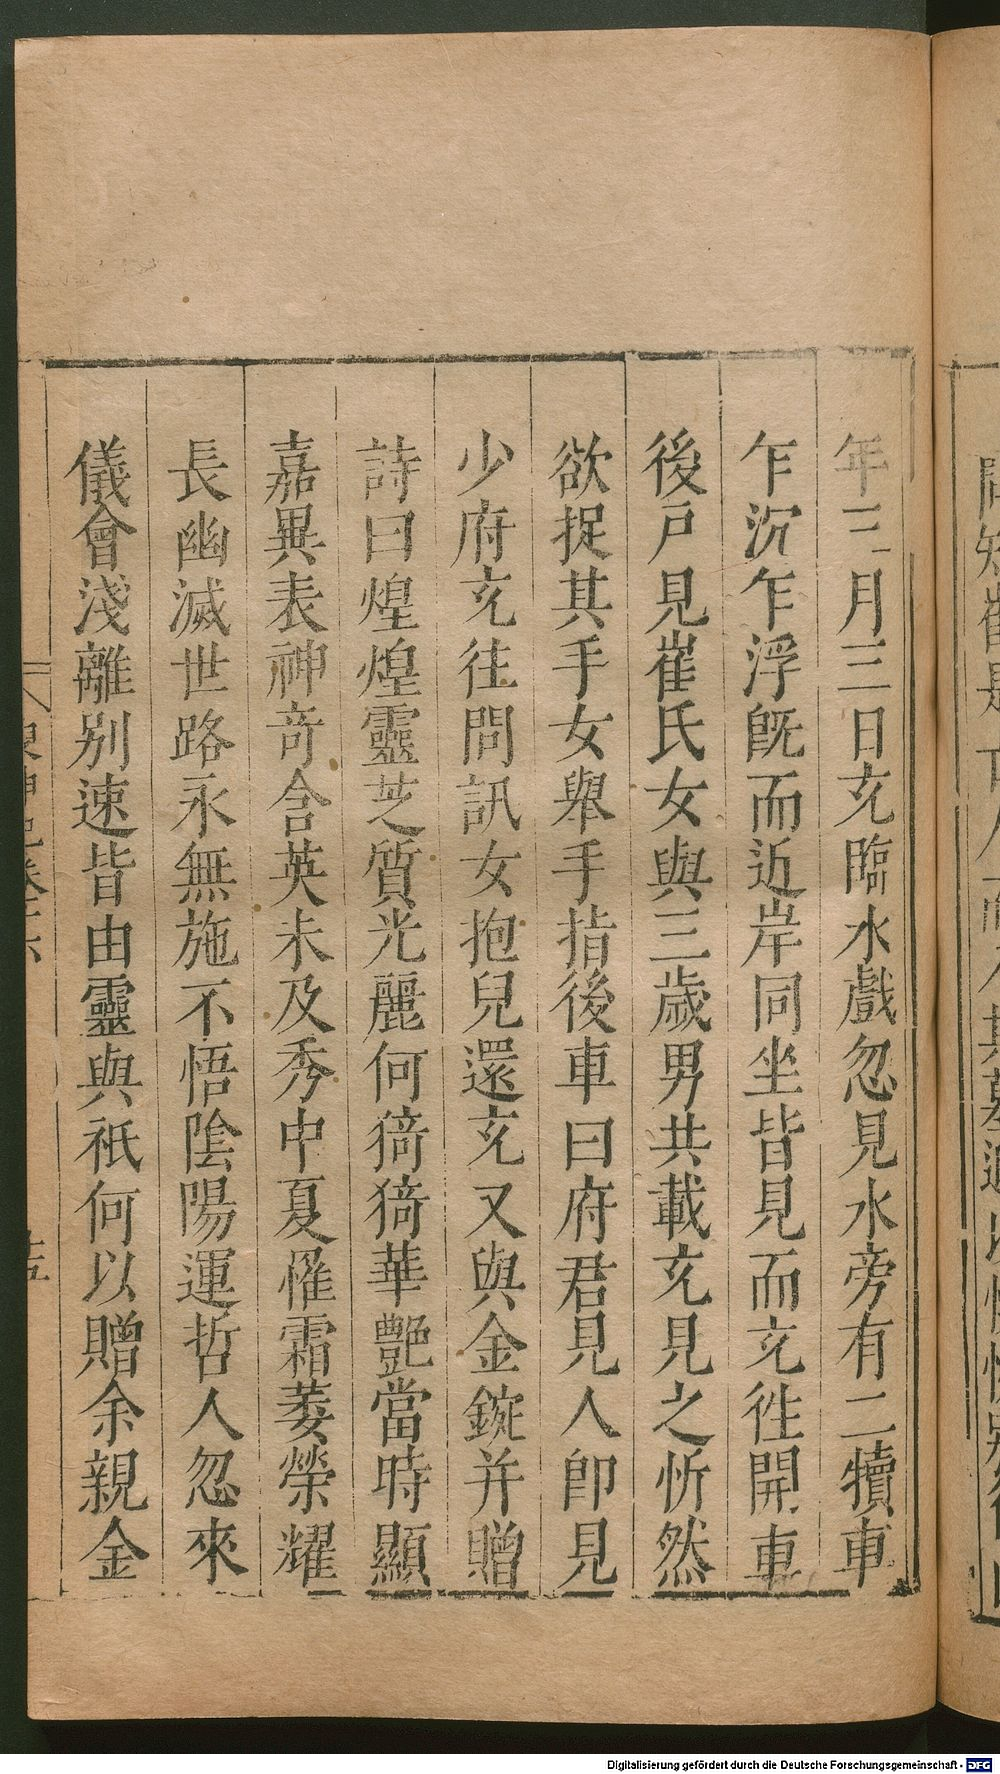 年三月三日充臨水戲忽見水旁有二犢車
乍沉乍浮旣而近岸同坐皆見而充徃開車
後戸見崔氏女與三歲男共載充見之忻然
欲捉其手女舉手指後車曰府君見人卽見
少府充徃問訊女抱兒還充又與金鋺并贈
詩曰煌煌靈芝質光麗何猗猗華艷當時顯
嘉異表神奇含英未及秀中夏罹霜萎榮耀
長幽滅世路永無施不悟陰陽運哲人忽來
儀會淺離別速皆由靈與祇何以贈余親金
搜神記卷十六
十五
Digitalisierung gefördert durch die Deutsche Forschungsgemeinschaft - DFG